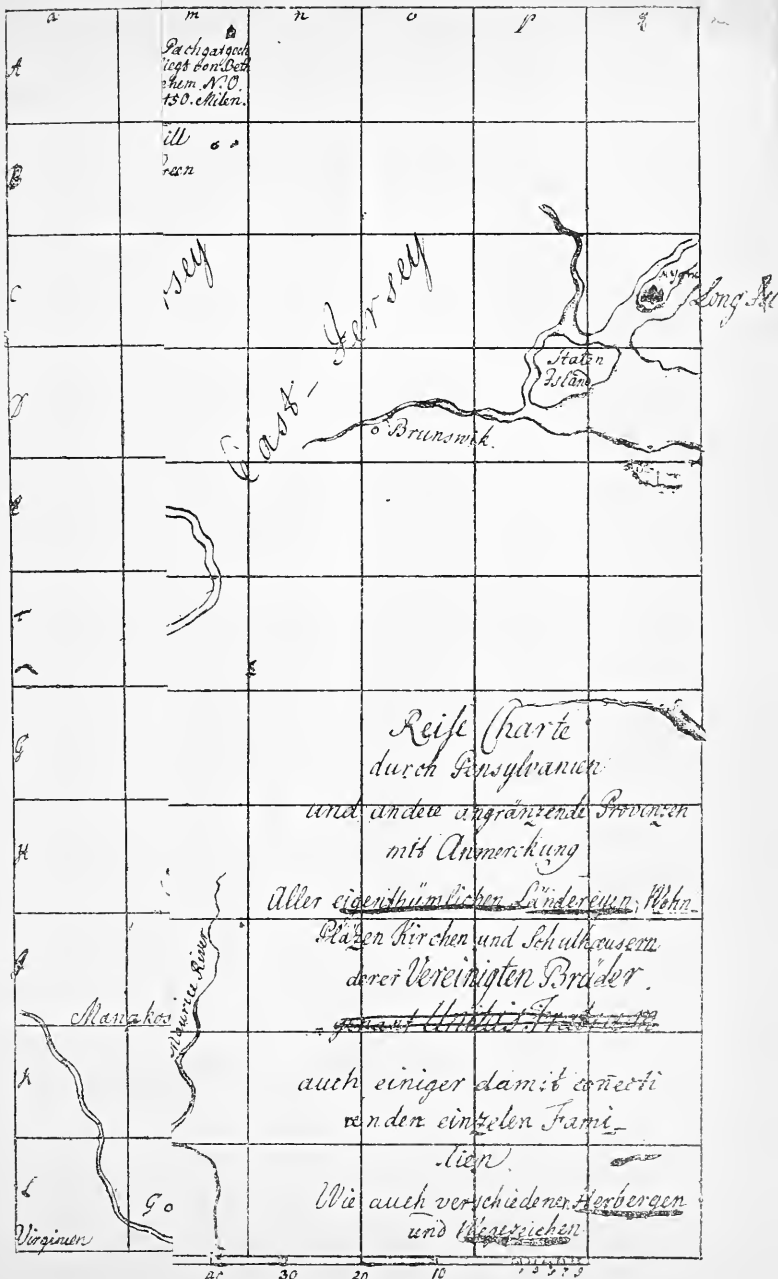 a m n o p q
A
Pachgatgoch
liegt von Beth
ehem N.O.
150. Milen.
B
ill
reen
C
rsey
East-Jersey
Long Isl
D
Staten
Island
Brunswik.
E
G
Reise Charte
durch Pensylvanien
und andere angränzende Provinzen
H
mit Anmerckung
Aller eigenthümlichen Ländereyen, Wohn
Pläzen Kirchen und Schulhäusern
derer Vereinigten Brüder.
genant Unitas Fratrum
Maurice River
Manakos
K
auch einiger damit conecti
renden einzelen Fami_
lien.
L
Wie auch verschiedener Herbergen
und Wegezeichen
Go
Virginien
30 20 10